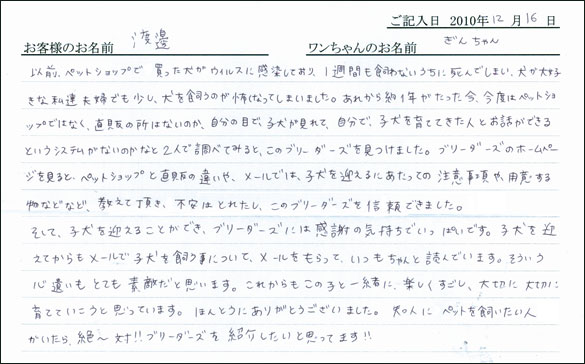 ご記入日 2010年12月16日
お客様のお名前 渡邊 ワンちゃんのお名前 ぎんちゃん
以前、ペットショップで 買った犬がウィルスに感染しており、1週間も飼わないうちに死んでしまい、犬が大好
きな私達夫婦でも少し、犬を飼うのが怖くなってしまいました。あれから約1年がたった今、今度はペットショ
ップではなく、直販の所はないのか、自分の目で、子犬が見れて、自分で、子犬を育ててきた人とお話ができる
というシステムがないのかなと2人で調べてみると、このブリーダーズを見つけました。ブリーダーズのホームペ
ージを見ると、ペットショップと直販の違いや、メールでは、子犬を迎えるにあたっての注意事項や、用意する
物などなど、教えて頂き、不安はとれたし、このブリーダーズを信頼できました。
そして、子犬を迎えることができ、ブリーダーズには感謝の気持ちでいっぱいです。子犬を迎
えてからもメールで子犬を飼う事について、メールをもらって、いつもちゃんと読んでいます。そういう
心遣いもとても素敵だと思います。これからもこの子と一緒に、楽しくすごし、大切に大切に
育てていこうと思っています。ほんとうにありがとうございました。知人にペットを飼いたい人
がいたら、絶〜対!!ブリーダーズを紹介したいと思ってます!!